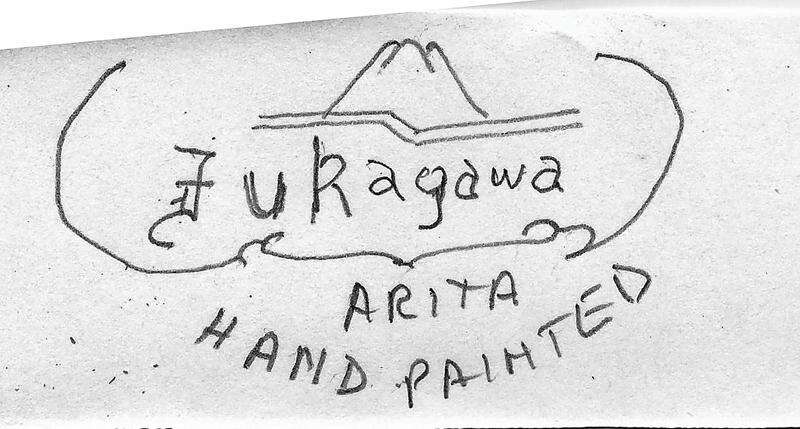 Fukagawa
ARITA
HAND PAINTED